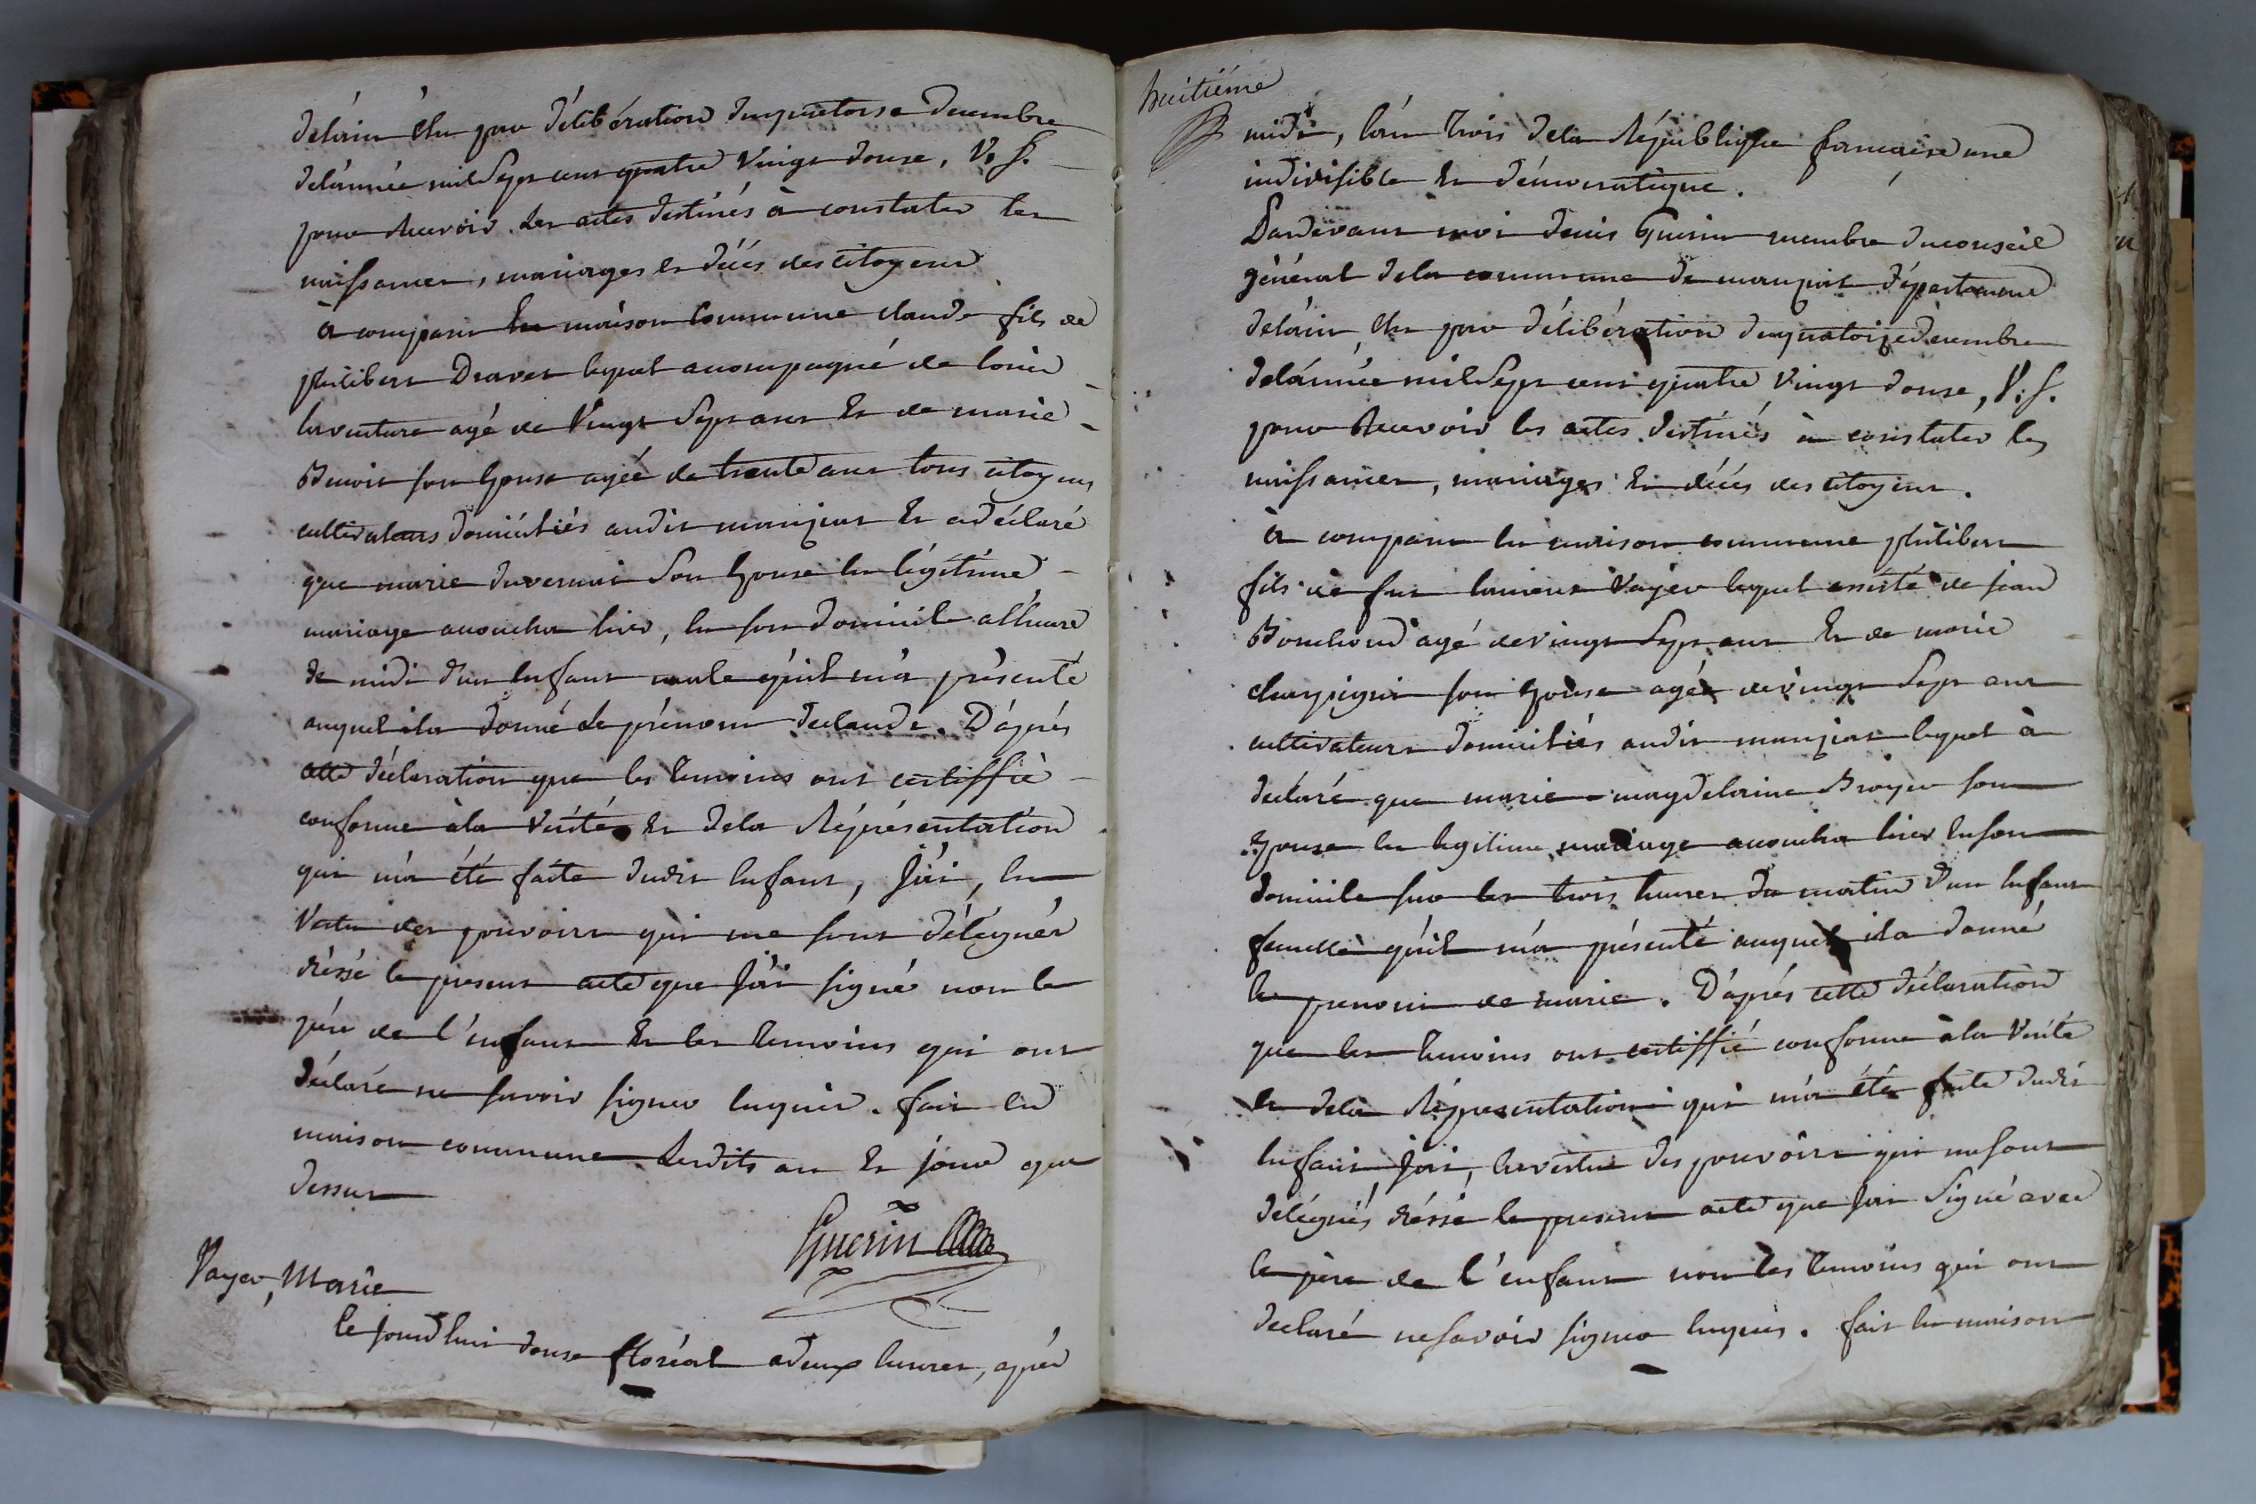 delain élu par délibération duquatorse decembre
delánnée mil Sept cent quatre Vingt douse, V. S.
pour Recevoir les actes destinés à constater les
naissances, mariages et décés des citoyens
à comparu En maison Commune claude fils de
philibert Dravet lequel accompagné de
agé de Vingt Sept ans Et de marie
Benoit son Epouse agée de trente ans tous citoyens
cultivateurs domiciliés audit manziat Et a déclaré
que marie duvernai Son Epouse En légitime
mariage accoucha hier, En son domicile a lheure
de midi dun Enfant male qu'il m'a présenté
auquel il a donné Le prénom declaude. D'aprés
cette déclaration que les témoins ont certiffié
conforme à la Vérité Et dela Réprésentation
qui m'a été faite dudit Enfant, J'ai, En
Vertu des pouvoirs qui me sont délégués
dréssé le present acte que J'ai signé non le
pére de l'enfant Et les témoins qui ont
déclaré ne savoir signer Enquis. fait En
maison commune Lesdits an Et jour que
dessus
Guerin
Vayer, Marie
Ce jourd'hui douse floréal a deux heures, aprés
huitiéme
midi, l'an trois dela République francaise une
indivisible Et démocratique.
Pardevant moi denis Guerin membre duconseil
général dela commune de manziat département
delain, élu par délibération duquatorze decembre
delánnée mil Sept cent quatre Vingt douse, V. S.
pour Recevoir les actes destinés à constater les
naissances, mariages Et décés des citoyens.
à comparu En maison commune philibert
fils de feu laurent Vayer lequel assisté de jean
Bouchoud agé de vingt Sept ans Et de marie
champignit son Epouse agée de vingt Sept ans
cultivateurs domiciliés audit manziat lequel à
déclaré que marie magdelaine Broyer son
Epouse En legitime mariage accoucha hier En son
domicile sur les trois heures du matin d'un Enfant
femelle qu'il m'a présenté auquel il a donné
le prenom de marie. D'aprés cette déclaration
que les témoins ont certiffié conforme à la Vérité
Et dela Répresentation qui m'a été faite dudit
Enfant, J'ai, En vertu des pouvoirs qui me sont
délégués dréssé le present acte que J'ai Signé avec
le pére de l'enfant non les témoins qui ont
declaré ne savoir signer Enquis. fait En maison